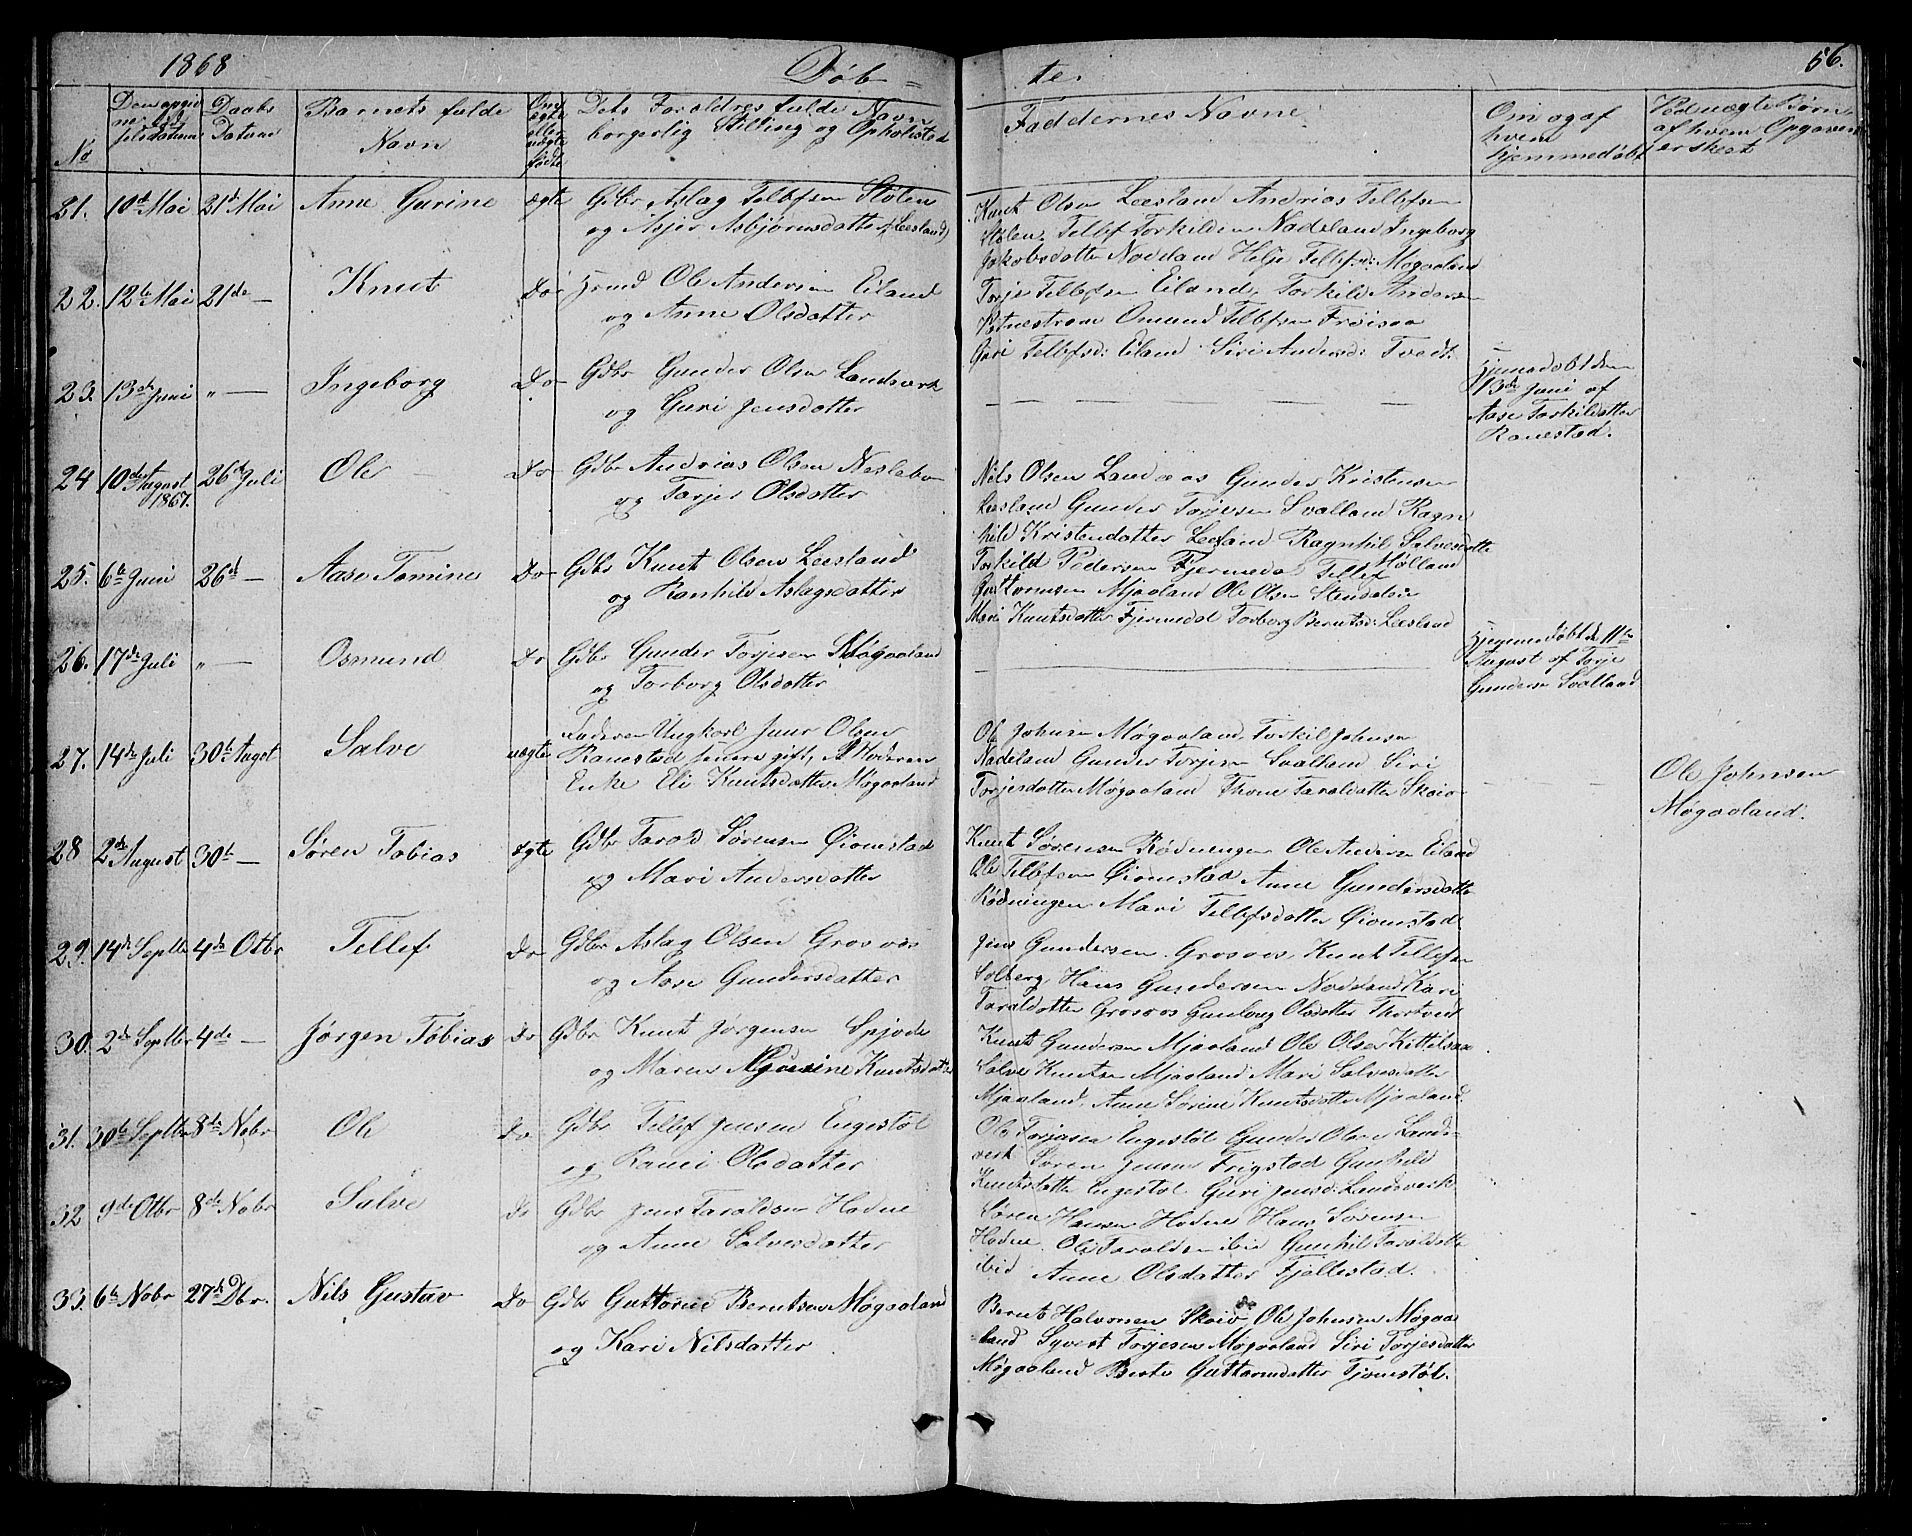 1868
Døb=
te.
56.
No
Daabs
Datum
Barnets fulde
Navn
ægte
eller
uægte
fødte
Dets Foraldres fulde Navn
borgerlig Stilling og Opholdsted
Faddernes Navne
Om og af
hvem
hjemmedøbt
Ved uægte Børn
af hvem Opgaven
er skeet
21. 10de Mai 21de Mai Anne Gurine ægte Gdbr Aslag Tellefsen Stølen
og Asjer Asbjørnsdatter (Leesland)
Knut Olsen Leesland Andrias Tellefsen
Stølen, Tellef Torkildsen Nadeland Ingeborg
Jakobsdatter Nodeland Helje Tellefsd: Møgaaland
22. 12te Mai 21de — Knut Do Ole Andersen Eiland
og Anne Olsdatter
Torje Tellefsen Eiland, Torkild Andersen
Omund Tellefsen Frøisaa
Guri Tellefsd: Eiland Siri Andersd: Tvedt
23. 13de Juni „ — Ingeborg Do Gdbr Gunder Olsen Landsverk
og Guri Jensdatter
Hjemmedøbt den
13de Juni af
Aase Torkildatter
Ranestad.
24 10de August 26de Juli Ole Do Gdbr Andrias Olsen Neslebo
1867. og Torjer Olsdatter
Nils Olsen Landaas Gunder Kristensen
Leesland Gunder Torjesen Svalland Ragn
hild Kristendatter Leesland Ragnhil Salvesdatte
Holland
25. 6te Juni 26de — Aase Tomine Do Gdbr Knut Olsen Leesland
og Ranhild Aslagsdatter
Torkild Pedersen Fjermedal Tellef
Guttormsen Mjaaland Ole Olsen Stendalen
Mari Knutsdatter Fjermedal Torborg Berntsd: Leesland
26. 17de Juli „ — Osmund Do Gdbr Gunder Torjesen Møgaaland
og Torborg Olsdatter
Hjemmedøbt d 11te
August af Torje
Gundersen Svalland
27. 14de Juli 30te Augst Salve uægte Faderen Ungkarl Jens Olsen
Ranestad gift, Moderen
Enke Eli Knutsdatter Møgaaland
Ole Johnsen Møgaaland, Torkil Johnsen
Nadeland Gunder Torjesen Svalland Siri
Torjesdatter Møgaaland Thone Taraldatter Skeie
Ole Johnsen
Møgaaland.
28 2de August 30te — Søren Tobias ægte Gdbr Tarald Sørensen Øiomstad
og Mari Andersdatter
Knut Sørensen Rødningen Ole Andersen Eiland
Ole Tellefsen Øiomstad Anne Gundersdatte
Rødningen Mari Tellefsdatter Øiomstad.
29. 14de Septbr 4de Otbr Tellef Do Gdbr Aslag Olsen Grosaas
og Aase Gundersdatter
Jens Gundersen Grosaas, Knut Tellefsen
Solberg, Hans Gundersen Nodeland Kari
Taraldatter Grosaas Gunlaug Olsdatter Thortvedt
30. 2de Septbr 4de — Jørgen Tobias Do Gdbr Knut Jørgensen Spjode
og Maren Knutsdatter
Knut Gundersen Mjaaland Ole Olsen Kittelsaa
Salve Knutsen Mjaaland Mari Salvesdatter
Mjaaland, Anne Sørine Knutsdatter Mjaaland
31. 30te Septbr 8de Nobr Ole Do Gdbr Tellef Jensen Engestøl
og Ranei Olsdatter
Ole Torjesen Engestøl Gunder Olsen Lands-
verk Søren Jensen Frigstad Gunhild
Knutsdatter Engestøl Guri Jensd: Landsverk
32 9de Otbr 8de Nobr Salve Do Gdbr Jens Taraldsen Hodne
og Anne Salvesdatter
Søren Hansen Hodne Hans Sørensen
Hodne Ole Taraldsen ibid Gunhil Taraldatte
ibid Anne Olsdatter Fjellestad.
33. 6te Nobr 27de Dbr. Nils Gustav Do Gdbr Guttorm Berntsen Møgaaland
og Kari Nilsdatter
Bernt Halvorsen Skeie Ole Johnsen Møgaa
land Syvert Torjesen Møgaaland Siri Torjesdatter
Møgaaland Berte Guttormdatter Tjomstøl.